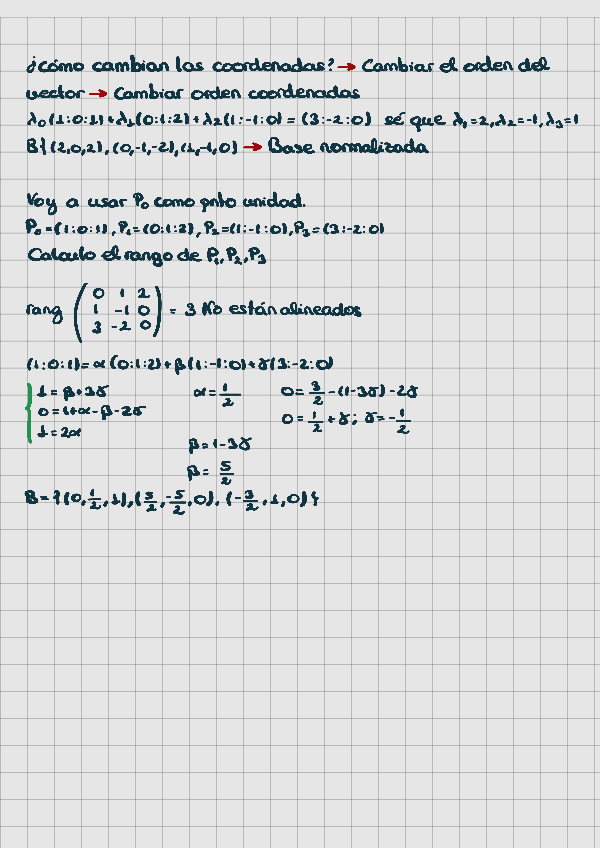 ¿cómo cambian las coordenadas? → Cambiar el orden del
vector → Cambiar orden coordenadas
λ₀(1:0:1)+λ₁(0:1:2)+λ₂(1:-1:0) = (3:-2:0) sé que λ₁=2, λ₂=-1, λ₃=1
B{(2,0,2), (0,-1,-2), (1,-1,0) → Base normalizada
Voy a usar P₀ como pnto unidad.
P₀=(1:0:1), P₁=(0:1:2), P₂=(1:-1:0), P₃=(3:-2:0)
Calculo el rango de P₁, P₂, P₃
rang (0 1 2
1 -1 0
3 -2 0) = 3 No están alineados
(1:0:1)=α(0:1:2)+β(1:-1:0)+γ(3:-2:0)
1=β+3γ α=1/2 0=3/2-(1-3γ)-2γ
0=1+α-β-2γ 0=1/2+γ; γ=-1/2
1=2α
β=1-3γ
β=5/2
B={(0,1/2,1),(5/2,-5/2,0),(-3/2,1,0)}